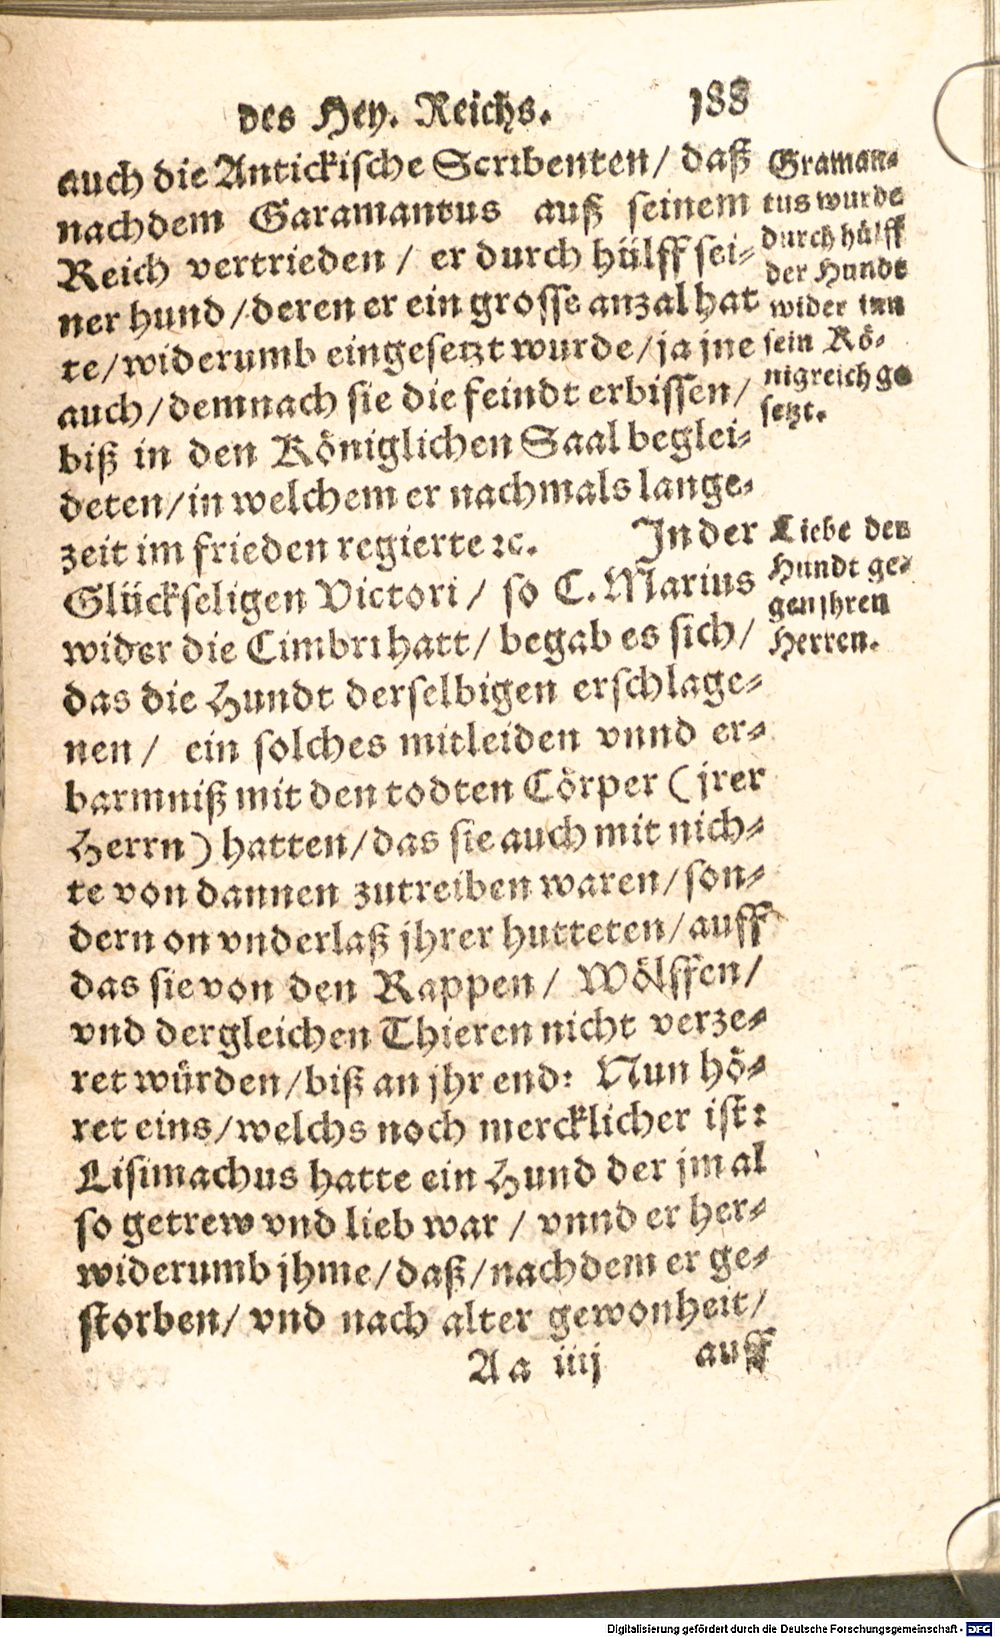 des Hey. Reichs. 188
auch die Antickische Scribenten/ daß
nachdem Garamantus auß seinem
Reich vertrieden / er durch hülff sei-
ner hund/deren er ein grosse anzal hat
te/widerumb eingesetzt wurde/ja jne
auch/demnach sie die feindt erbissen/
biß in den Königlichen Saal beglei-
deten/in welchem er nachmals lange-
zeit im frieden regierte ꝛc. In der
Glückseligen Victori / so C. Marius
wider die Cimbri hatt/ begab es sich/
das die Hundt derselbigen erschlage-
nen / ein solches mitleiden vnnd er-
barmniß mit den todten Cörper (jrer
Herrn) hatten/das sie auch mit nich-
te von dannen zutreiben waren/son-
dern on vnderlaß jhrer hutteten/auff
das sie von den Rappen/ Wölffen/
vnd dergleichen Thieren nicht verze-
ret würden/biß an jhr end: Nun hö-
ret eins/welchs noch mercklicher ist:
Lisimachus hatte ein Hund der jm al
so getrew vnd lieb war / vnnd er her-
widerumb jhme/daß/nachdem er ge-
storben/ vnd nach alter gewonheit/
Aa iiij auff
Graman-
tus wurde
durch hülff
der Hundt
wider inn
sein Kö-
nigreich ge
setzt.
Liebe der
Hundt ge-
gen jhren
Herren.
Digitalisierung gefördert durch die Deutsche Forschungsgemeinschaft - DFG